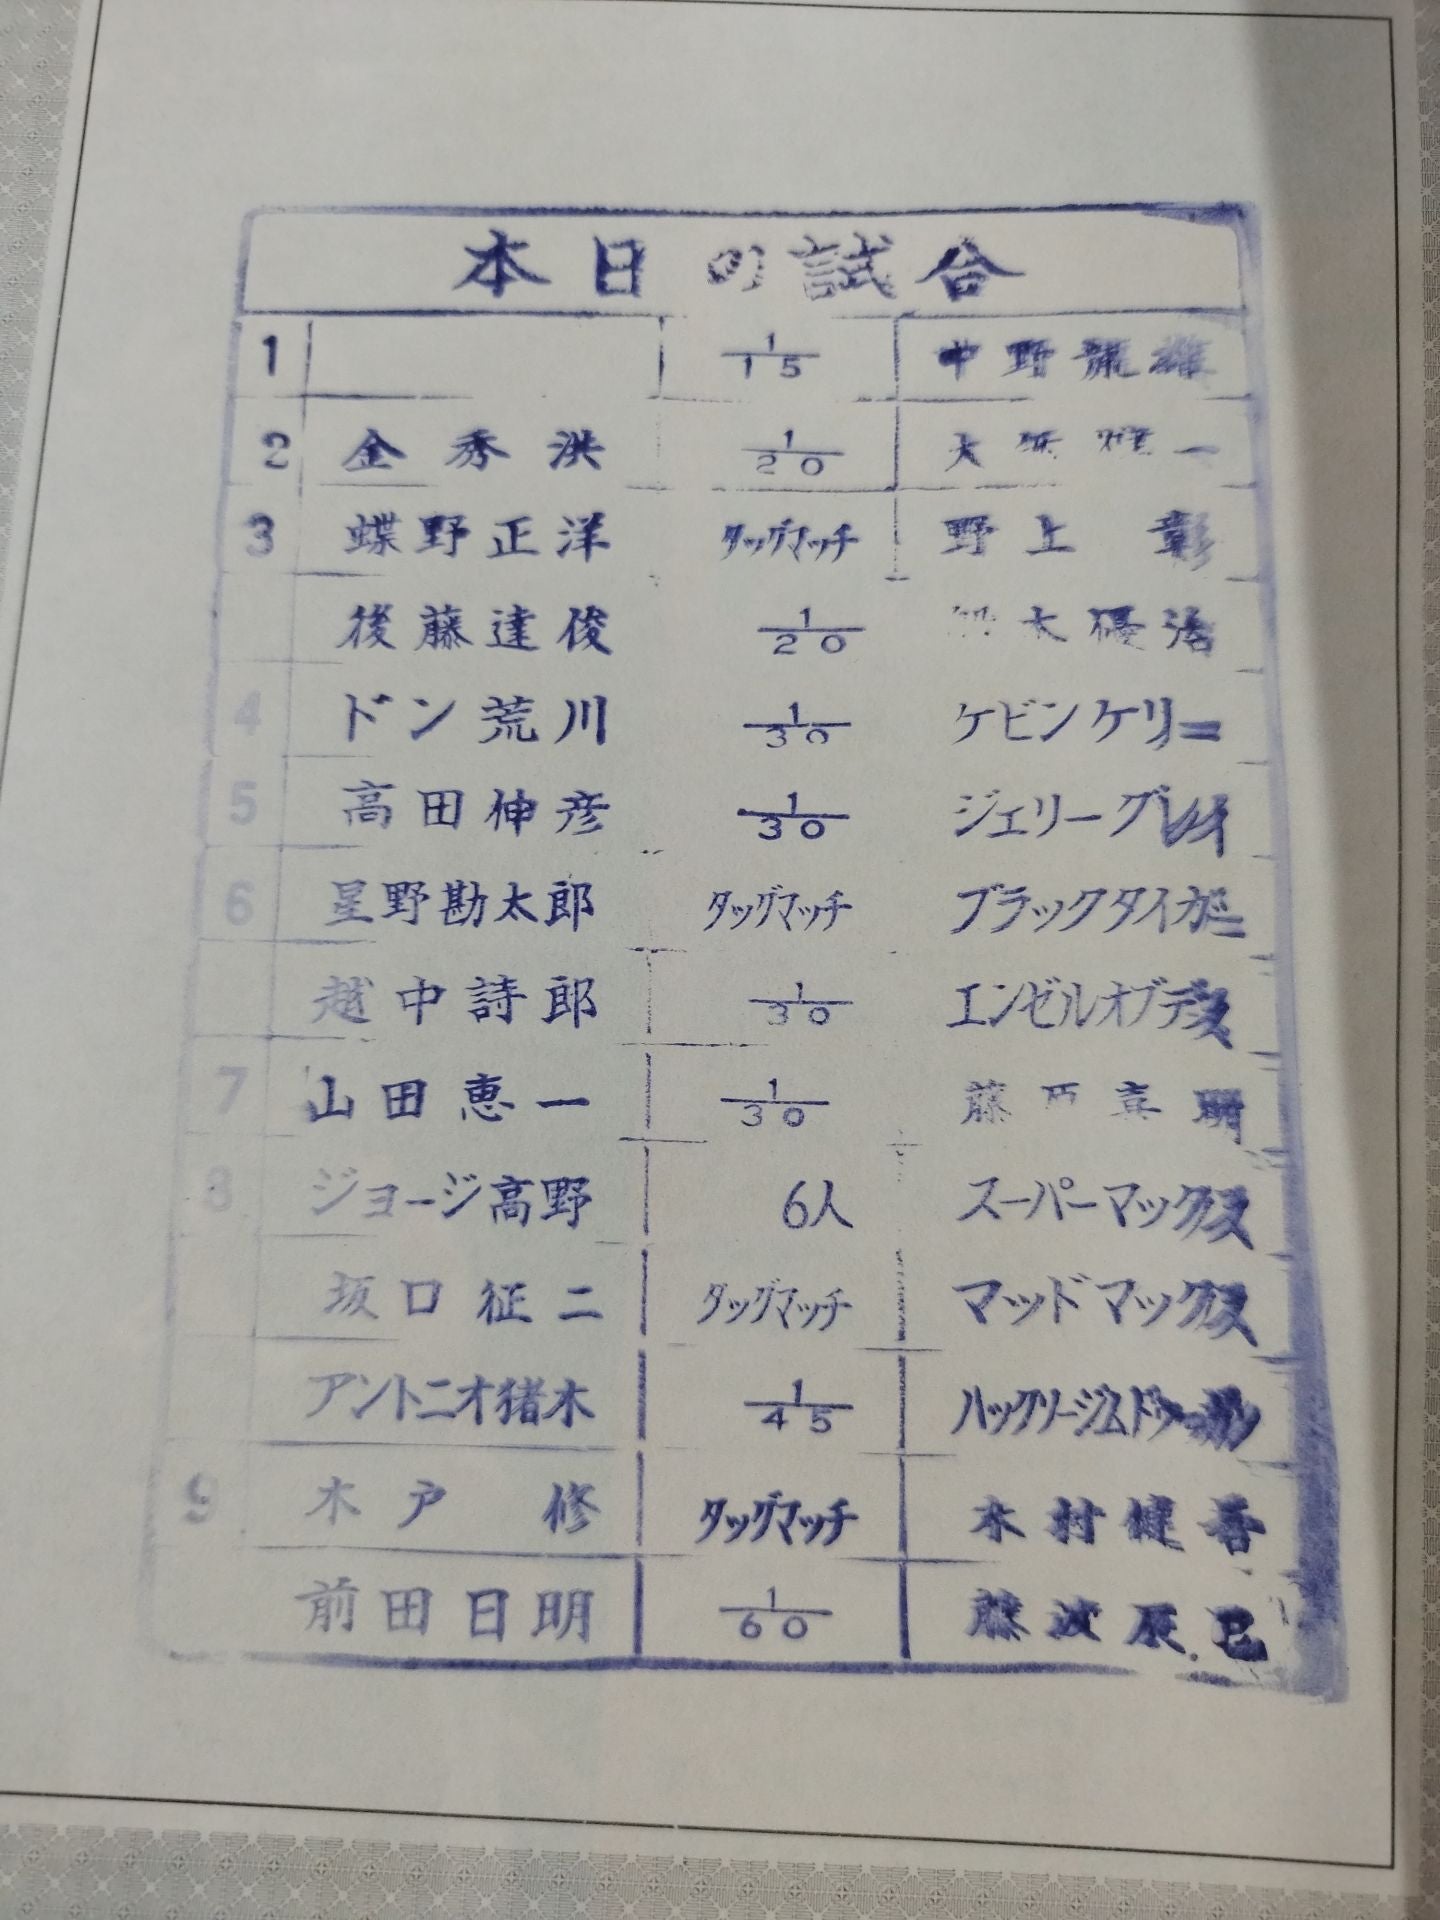 本日の試合
1 1/15 中野龍雄
2 金秀洪 1/20 大 一
3 蝶野正洋 タッグマッチ 野上 彰
後藤達俊 1/20 木優治
4 ドン荒川 1/30 ケビンケリー
5 高田伸彦 1/30 ジェリーグレイ
6 星野勘太郎 タッグマッチ ブラックタイガー
越中詩郎 1/30 エンゼルオブデス
7 山田恵一 1/30 藤原喜明
8 ジョージ高野 6人 スーパーマックス
坂口征二 タッグマッチ マッドマックス
アントニオ猪木 1/45 ハックソージムドゥガン
9 木戸 修 タッグマッチ 木村健吾
前田日明 1/60 藤波辰巳